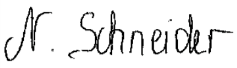 N. Schneider